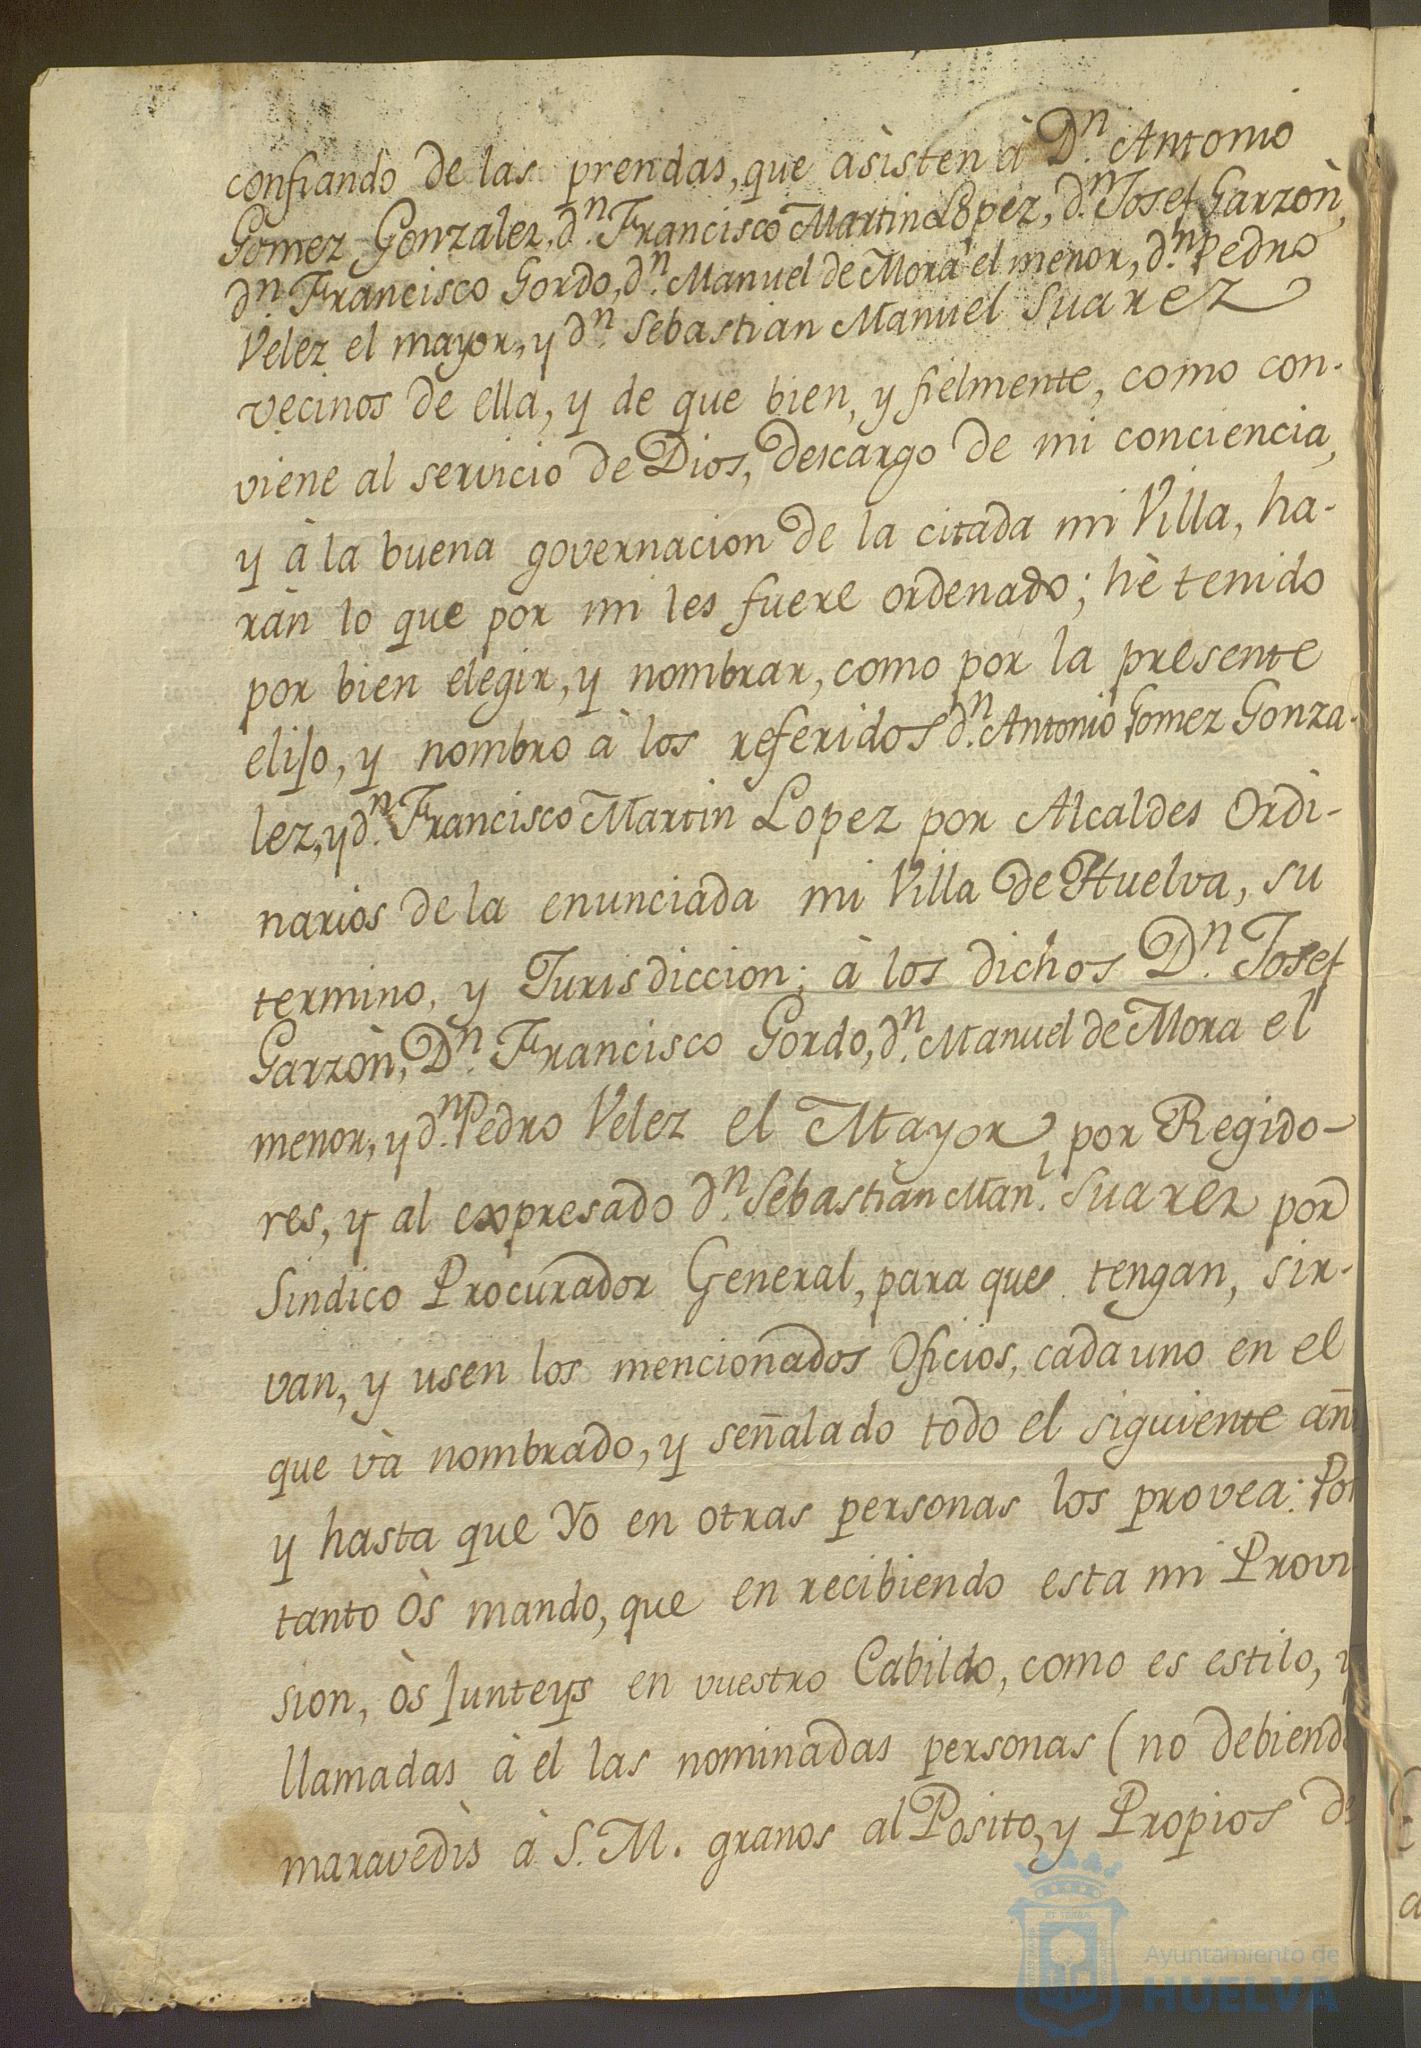 confiando de las prendas, que asisten à Dn. Antonio
Gomez Gonzalez, dn. Francisco Martin Lopez, dn. Josef Garzòn,
dn. Francisco Gordo, dn. Manuel de Mora el menor, dn. Pedro
Velez el mayor, y dn. Sebastian Manuel Suarez
vecinos de ella, y de que bien, y fielmente, como con-
viene al servicio de Dios, descargo de mi conciencia,
y à la buena governacion de la citada mi Villa, ha-
ràn lo que por mi les fuere ordenado; hè tenido
por bien elegir, y nombrar, como por la presente
elijo, y nombro à los referidos dn. Antonio Gomez Gonza-
lez, y dn. Francisco Martin Lopez por Alcaldes Ordi-
narios de la enunciada mi Villa de Huelva, su
termino, y Jurisdiccion; à los dichos Dn. Josef
Garzòn, Dn. Francisco Gordo, dn. Manuel de Mora el
menor, y dn. Pedro Velez el Mayor, por Regido-
res, y al expresado dn. Sebastian Manl. Suarez por
Sindico Procurador General, para que tengan, sir-
van, y usen los mencionados Oficios, cada uno en el
que và nombrado, y señalado todo el siguiente añ
y hasta que Yo en otras personas los provea: Por
tanto òs mando, que en recibiendo esta mi Provi
sion, òs junteys en vuestro Cabildo, como es estilo, y
llamadas à el las nominadas personas (no debiendo
maravedìs à S. M. granos al Posito, y Propios de
Ayuntamiento de
HUELVA